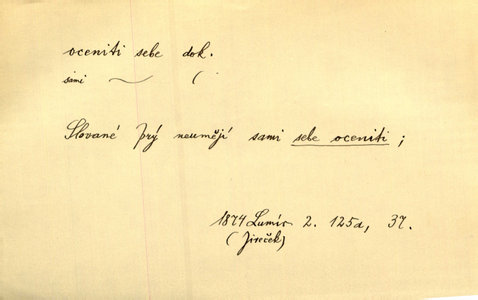 oceniti sebe dok.
sami ~ (
Slované prý neumějí sami sebe oceniti ;
1874 Lumír 2. 125a, 37.
(Jireček)